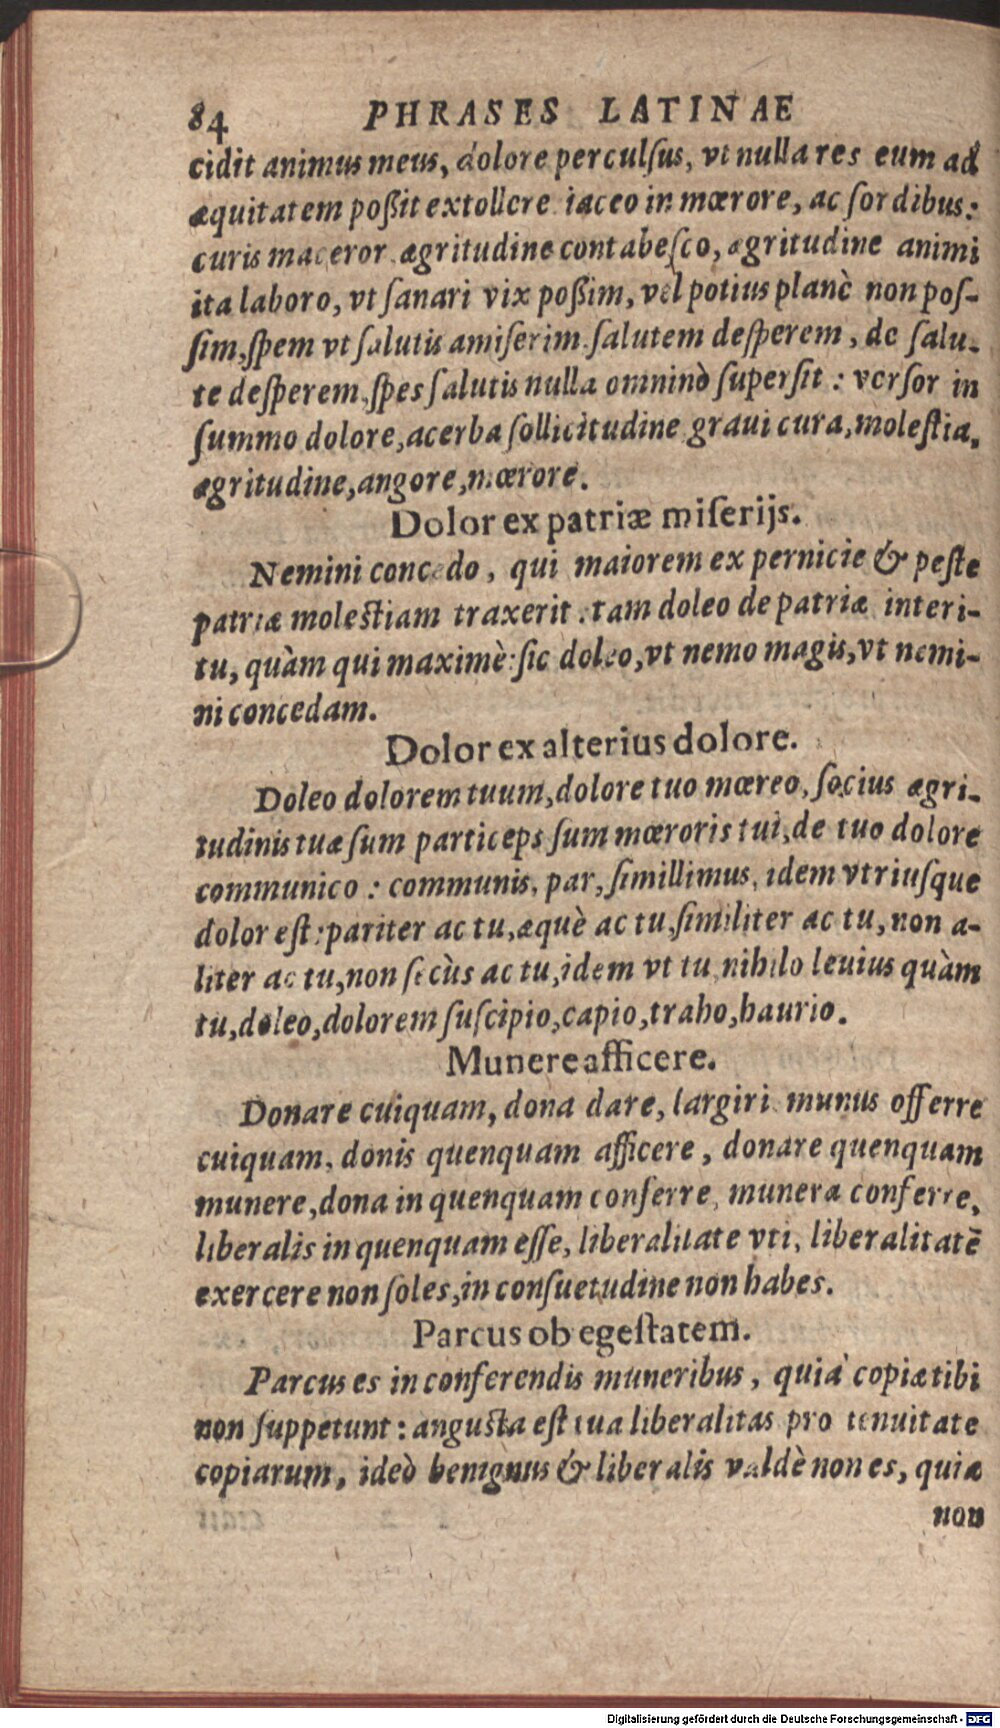 84 PHRASES LATINAE
cidit animus meus, dolore perculſus, vt nulla res eum ad
æquitatem poßit extollere iaceo in mœrore, ac ſordibus:
curis maceror ægritudine contabeſco, ægritudine animi
ita laboro, vt ſanari vix poßim, vel potius planè non poſ-
ſim, ſpem vt ſalutis amiſerim. ſalutem deſperem, de ſalu-
te deſperem, ſpes ſalutis nulla omninò ſuperſit : verſor in
ſummo dolore, acerba ſollicitudine graui cura, moleſtia,
ægritudine, angore, mœrore.
Dolor ex patriæ miſerijs.
Nemini concedo, qui maiorem ex pernicie & peſte
patriæ moleſtiam traxerit : tam doleo de patriæ interi-
tu, quàm qui maximè: ſic doleo, vt nemo magis, vt nemi-
ni concedam.
Dolor ex alterius dolore.
Doleo dolorem tuum, dolore tuo mœreo, ſocius ægri-
tudinis tuæ ſum particeps ſum mœroris tui, de tuo dolore
communico : communis, par, ſimillimus, idem vtriuſque
dolor eſt: pariter ac tu, æquè ac tu, ſimiliter ac tu, non a-
liter ac tu, non ſecùs ac tu, idem vt tu, nihilo leuius quàm
tu, doleo, dolorem ſuſcipio, capio, traho, haurio.
Munere afficere.
Donare cuiquam, dona dare, largiri munus offerre
cuiquam, donis quenquam afficere, donare quenquam
munere, dona in quenquam conferre, munera conferre,
liberalis in quenquam eſſe, liberalitate vti, liberalitatē
exercere non ſoles, in conſuetudine non habes.
Parcus ob egeſtatem.
Parcus es in conferendis muneribus, quia copiæ tibi
non ſuppetunt : anguſta eſt tua liberalitas pro tenuitate
copiarum, ideò benignus & liberalis valdè non es, quia
non
Digitalisierung gefördert durch die Deutsche Forschungsgemeinschaft - DFG